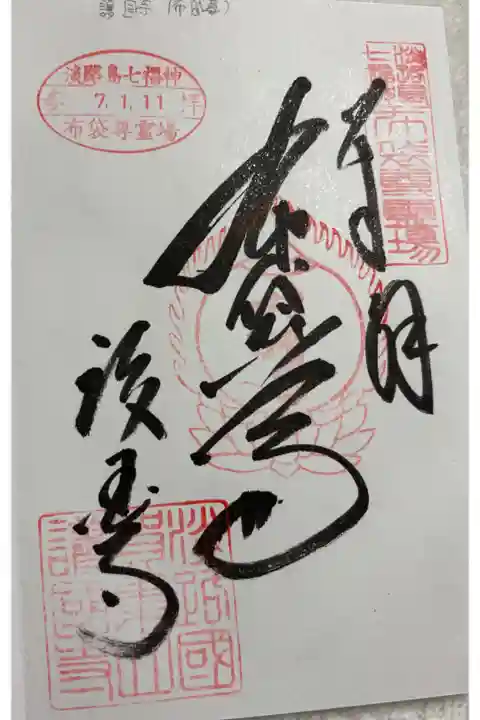 護国寺(布袋尊)
淡路島七福神
参 7.1.11 拝
布袋尊霊場
淡路島七福神布袋尊霊場
奉拝
布袋尊
護国寺
淡路國賀集山護国寺